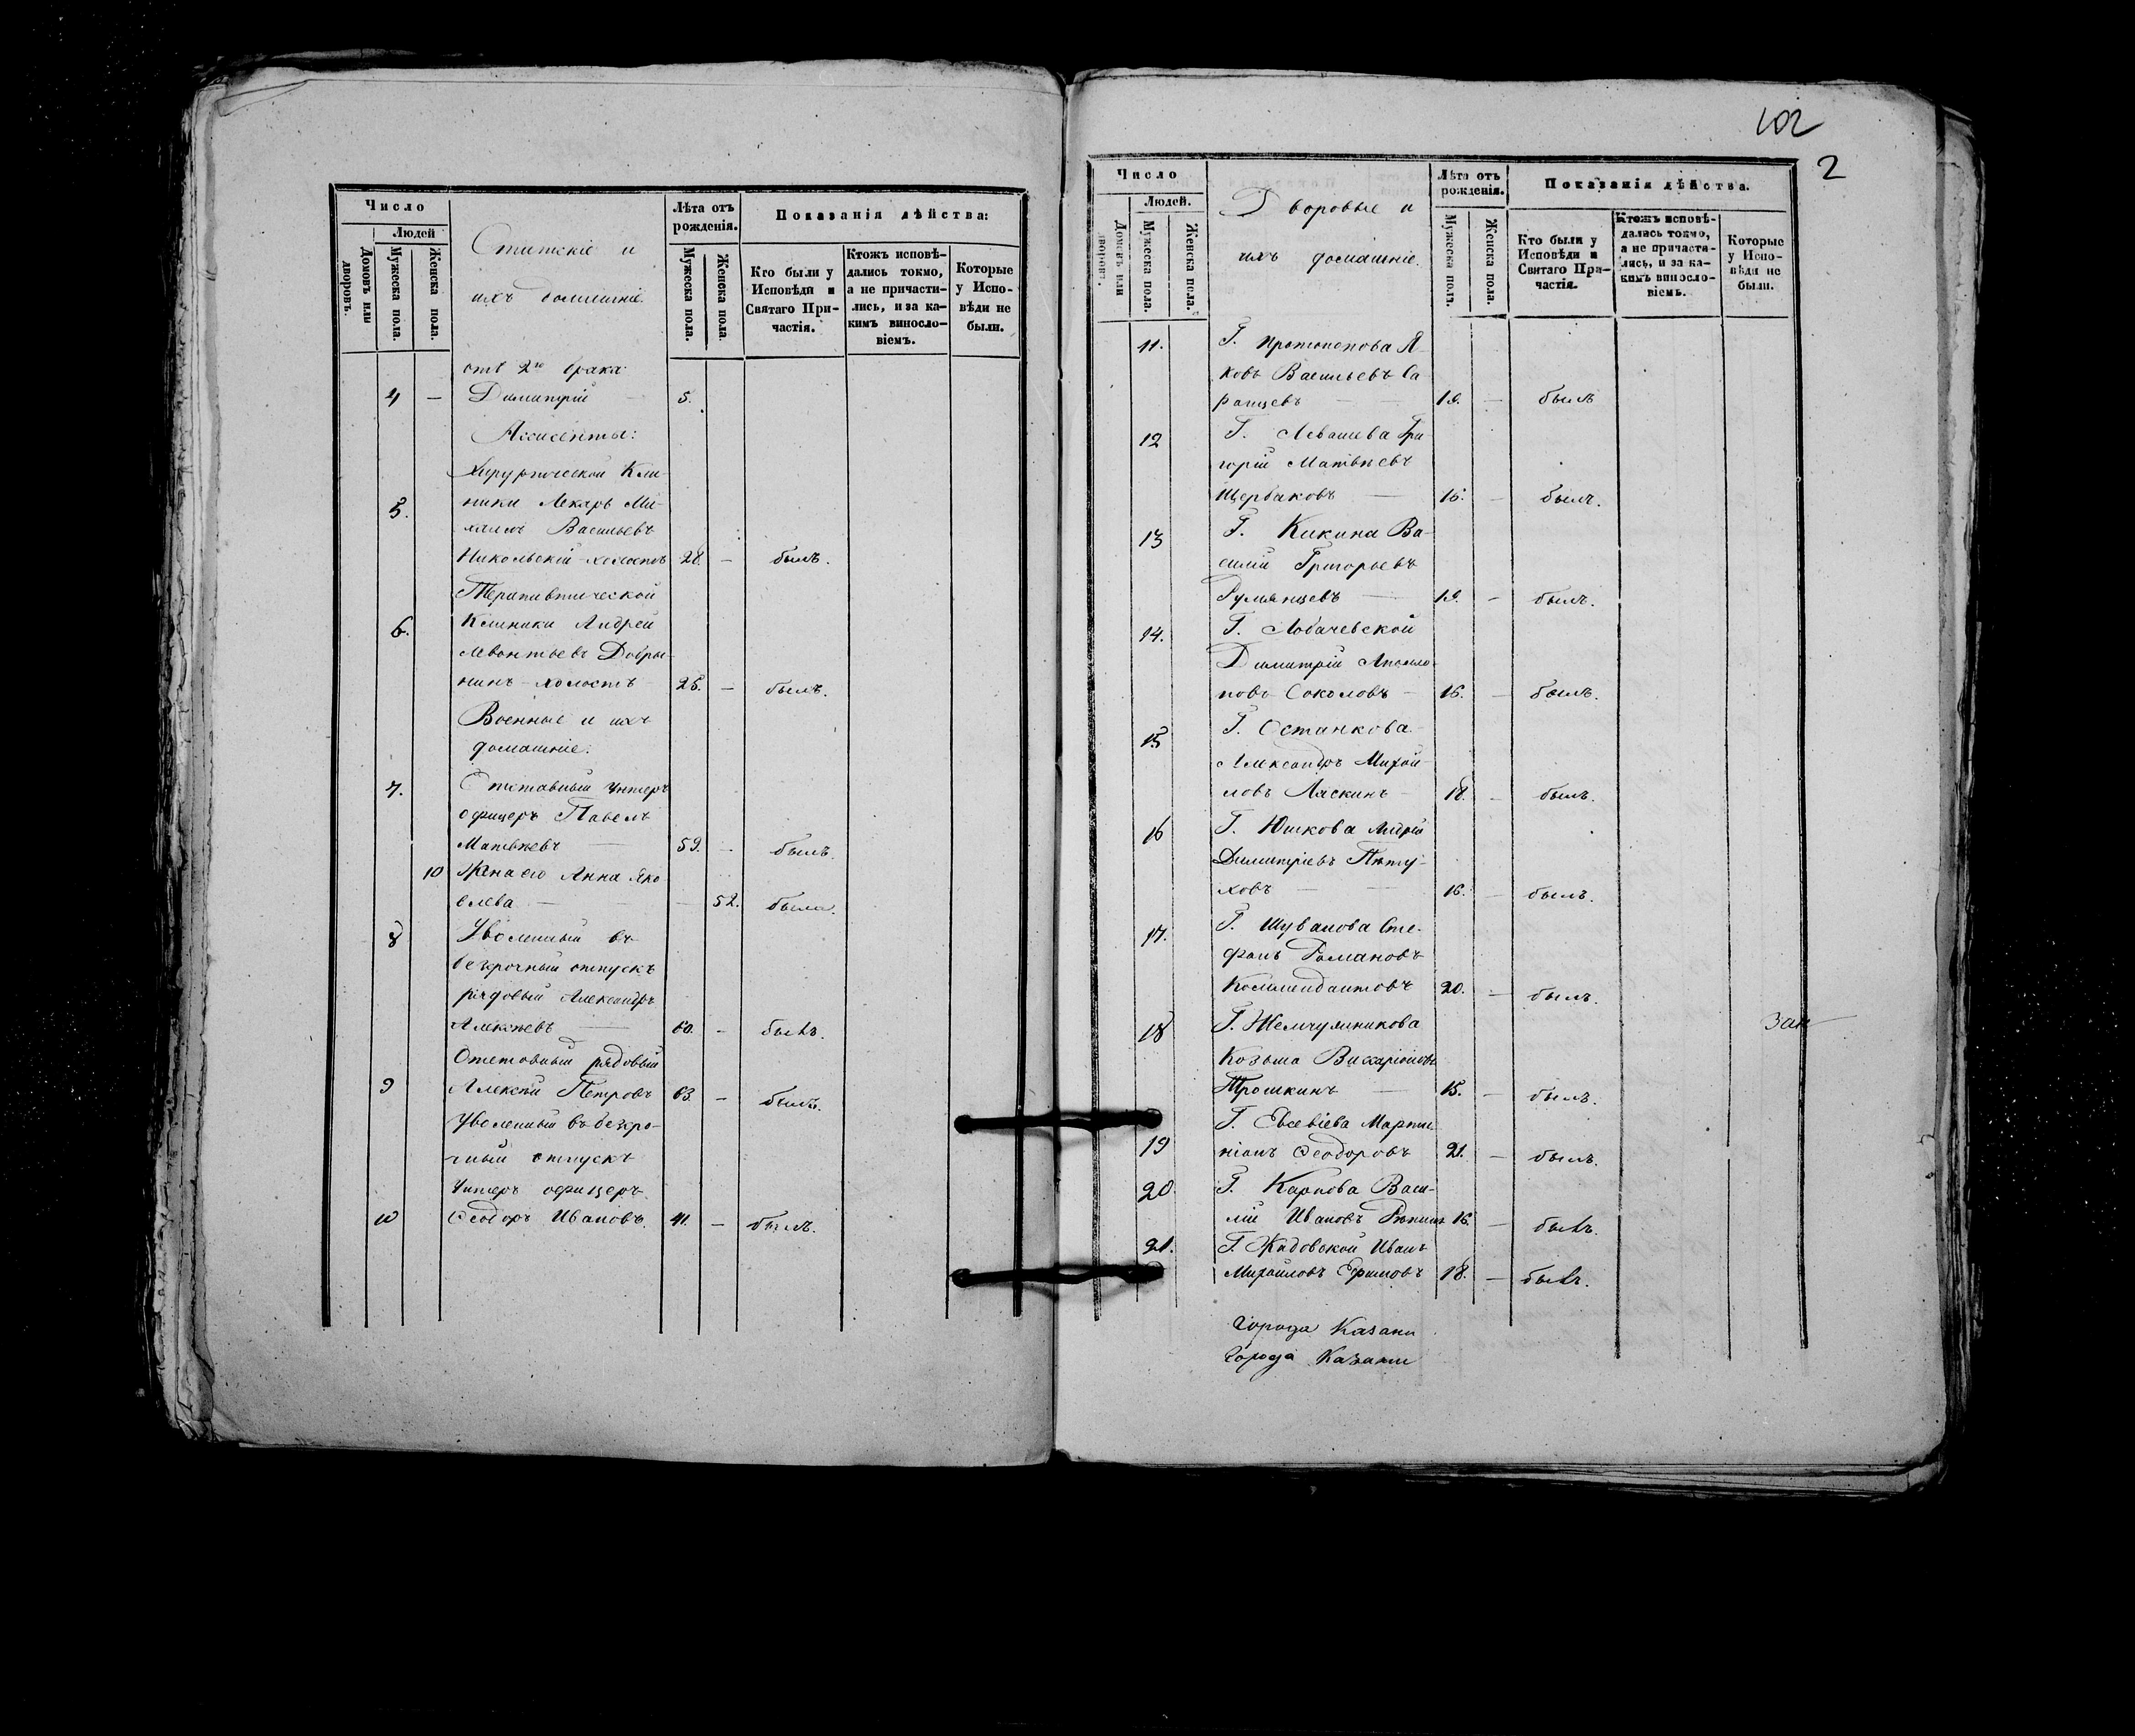 Число
Людей
Домовъ или дворовъ.
Мужеска пола.
Женска пола.
Статскіе и
ихъ домашніе.
Лѣта отъ рожденія.
Мужеска пола.
Женска пола.
Показанія дѣйства:
Кто были у Исповѣди и Святаго Причастія.
Ктожъ исповѣдались токмо, а не причастились, и за какимъ винословіемъ.
Которые у Исповѣди не были.
отъ 2го брака
4 — Димитрій 5.
Ассистенты:
Хирургической Кли-
5. ники Лекарь Ми-
хаилъ Васильевъ
Никольскій - холостъ 28. — былъ.
Терапивтической
6. Клиники Андрей
Левонтьевъ Добры-
нинъ - холостъ 25. — былъ.
Военные и ихъ
домашніе.
7. Отставный Унтеръ
офицеръ Павелъ
Матвѣевъ — 59. — былъ.
10 Жена его Анна Яко
влева — 52. была.
8 Уволенный въ
безрочный отпускъ
рядовый Александръ
Алексѣевъ — 60. — былъ.
Отставный рядовый
9 Алексѣй Петровъ 63. — былъ.
Уволенный въ безро-
чный отпускъ
Унтеръ офицеръ
10 Ѳеодоръ Ивановъ. 41. — былъ.
102
2
Число
Людей.
Домовъ или дворовъ.
Мужеска пола.
Женска пола.
Дворовые и
ихъ домашніе.
Лѣта отъ рожденія.
Мужеска пола.
Женска пола.
Показанія дѣйства.
Кто были у Исповѣди и Святаго Причастія.
Ктожъ исповѣдались токмо, а не причастились, и за какимъ винословіемъ.
Которые у Исповѣди не были.
11. Г. Протопопова Я-
ковъ Васильевъ Са
ранцевъ — 19. — былъ
12 Г. Левашева Гри-
горій Матвѣевъ
Щербаковъ — 16. — былъ.
13 Г. Кикина Ва-
силій Григорьевъ
Румянцевъ — 19. — былъ.
14. Г. Лобачевской
Димитрій Аполло-
новъ Соколовъ — 16. — былъ.
15 Г. Останкова
Александръ Михай-
ловъ Ласкинъ — 18. — былъ.
16 Г. Юшкова Андрей
Димитріевъ Пѣту-
ховъ — 16. — былъ.
17. Г. Шувалова Сте-
фанъ Романовъ
Коммендантовъ 20. — былъ.
18 Г. Жемчужникова
Козьма Виссаріоновъ
Трошкинъ — 15. — былъ.
Г. Евсевіева Марти-
19 ніанъ Ѳеодоровъ 21. — былъ.
20 Г. Карпова Васи-
лій Ивановъ Рѣпинъ 16. — былъ.
21. Г. Жадовской Иванъ
Михайловъ Ефимовъ 18. — былъ.
Города Казани
Города Казани